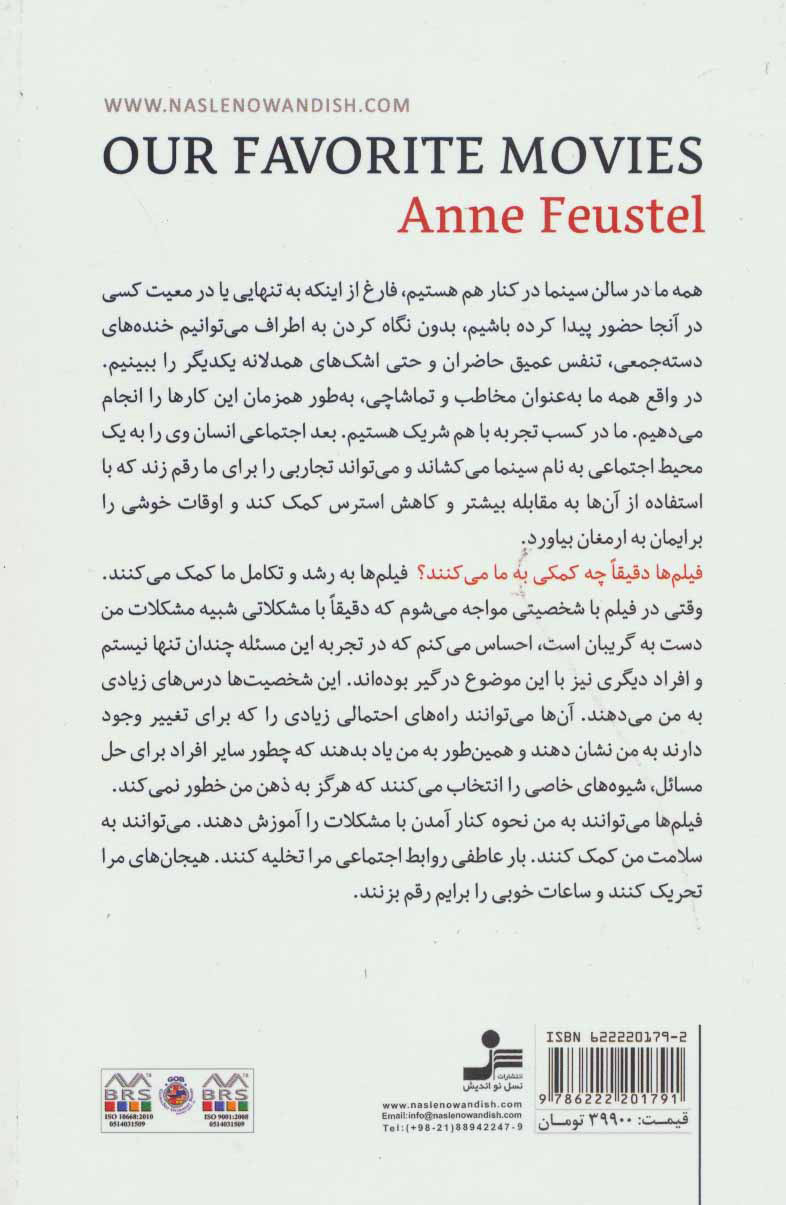 WWW.NASLENOWANDISH.COM
OUR FAVORITE MOVIES
Anne Feustel
همه ما در سالن سینما در کنار هم هستیم، فارغ از اینکه به تنهایی یا در معیت کسی
در آنجا حضور پیدا کرده باشیم، بدون نگاه کردن به اطراف می‌توانیم خنده‌های
دسته‌جمعی، تنفس عمیق حاضران و حتی اشک‌های همدلانه یکدیگر را ببینیم.
در واقع همه ما به‌عنوان مخاطب و تماشاچی، به‌طور همزمان این کارها را انجام
می‌دهیم. ما در کسب تجربه با هم شریک هستیم. بعد اجتماعی انسان وی را به یک
محیط اجتماعی به نام سینما می‌کشاند و می‌تواند تجاربی را برای ما رقم زند که با
استفاده از آن‌ها به مقابله بیشتر و کاهش استرس کمک کند و اوقات خوشی را
برایمان به ارمغان بیاورد.
فیلم‌ها دقیقاً چه کمکی به ما می‌کنند؟ فیلم‌ها به رشد و تکامل ما کمک می‌کنند.
وقتی در فیلم با شخصیتی مواجه می‌شوم که دقیقاً با مشکلاتی شبیه مشکلات من
دست به گریبان است، احساس می‌کنم که در تجربه این مسئله چندان تنها نیستم
و افراد دیگری نیز با این موضوع درگیر بوده‌اند. این شخصیت‌ها درس‌های زیادی
به من می‌دهند. آن‌ها می‌توانند راه‌های احتمالی زیادی را که برای تغییر وجود
دارند به من نشان دهند و همین‌طور به من یاد بدهند که چطور سایر افراد برای حل
مسائل، شیوه‌های خاصی را انتخاب می‌کنند که هرگز به ذهن من خطور نمی‌کند.
فیلم‌ها می‌توانند به من نحوه کنار آمدن با مشکلات را آموزش دهند. می‌توانند به
سلامت من کمک کنند. بار عاطفی روابط اجتماعی مرا تخلیه کنند. هیجان‌های مرا
تحریک کنند و ساعات خوبی را برایم رقم بزنند.
ISBN 622220179-2
9 786222 201791
قیمت: ۳۹۹۰۰ تومان
انتشارات
نسل نو اندیش
www.naslenowandish.com
Email:info@naslenowandish.com
Tel:(+98-21)88942247-9
BRS
ISO 10668:2010
0514031509
GOB
BRS
ISO 9001:2008
0514031509